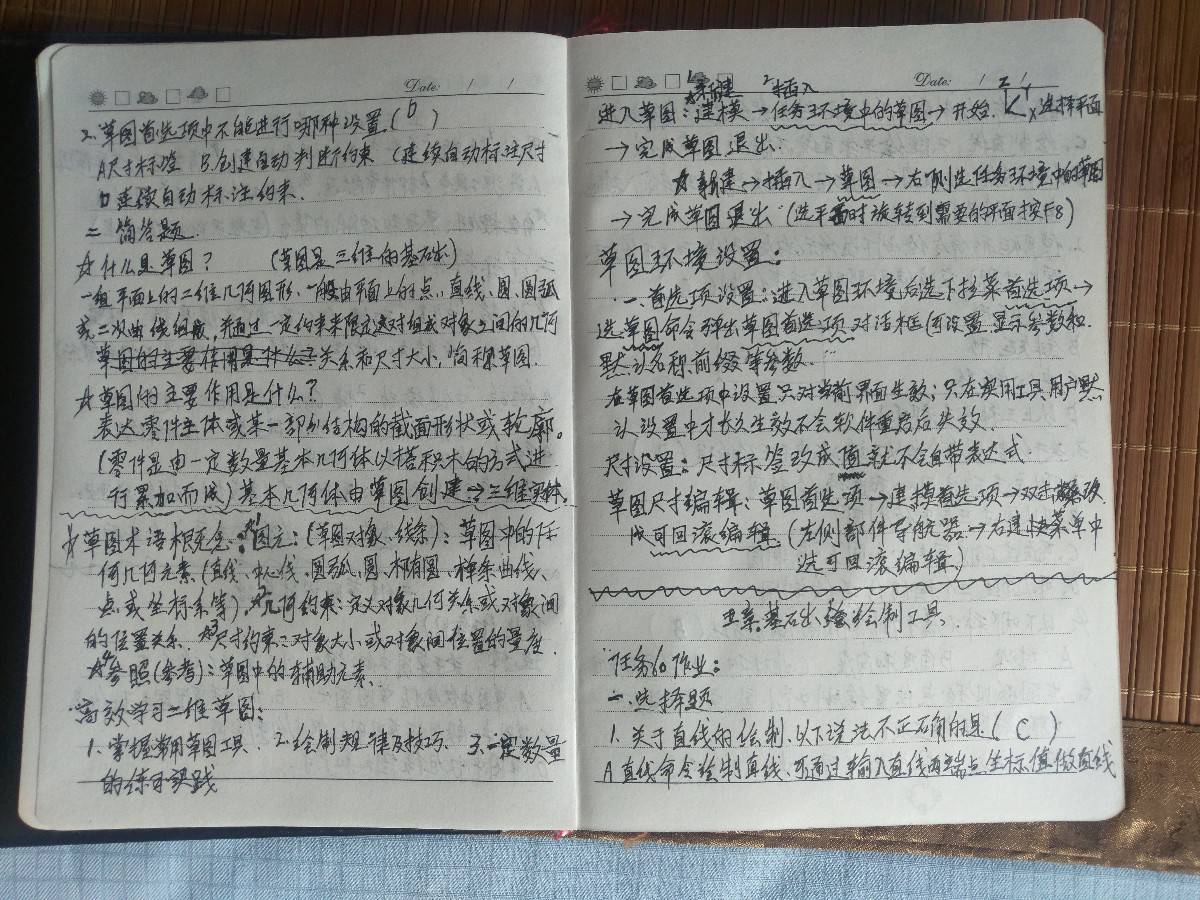 Date: / /
2. 草图首选项中不能进行哪种设置.( b )
A尺寸标签 B.创建自动判断约束 C连续自动标注尺寸
D连续自动标注约束.
二 简答题
☆什么是草图? (草图是三维的基础)
一组平面上的二维几何图形、一般由平面上的点、直线、圆、圆弧
或二次曲线组成,并通过一定约束来限定这对组成对象之间的几何
草图的主要作用是什么? 关系和尺寸大小,简称草图.
☆草图的主要作用是什么?
表达零件主体或某一部分结构的截面形状或轮廓。
(零件是由一定数量基本几何体以搭积木的方式进
行累加而成)基本几何体由草图创建→三维实体.
☆草图术语概念:☆1图元:(草图对象、线条):草图中的任
何几何元素.(直线、中心线、圆弧、圆、椭圆、样条曲线、
点或坐标系等),☆2几何约束:定义对象几何关系或对象间
的位置关系. ☆3尺寸约束:对象大小或对象间位置的量度.
☆4参照(参考):草图中的辅助元素.
高效学习二维草图:
1、掌握常用草图工具. 2.绘制规律及技巧、 3.一定数量
的练习实践
Date: / /
1新建 2插入
进入草图:☆建模→任务环境中的草图→开始. Z Y X 选择平面
→完成草图退出.
☆新建→插入→草图→右侧选任务环境中的草图
→完成草图退出 (选平面时旋转到需要的平面按F8)
草图环境设置:
一、首选项设置:进入草图环境后选下拉菜首选项→
选草图命令弹出草图首选项对话框(可设置显示参数和
默认名称前缀等参数.
在草图首选项中设置只对当前界面生效;只在实用工具用户默
认设置中才长久生效不会软件重启后失效.
尺寸设置:尺寸标签改成值就不会自带表达式.
草图尺寸编辑:草图首选项→建模首选项→双击改
成可回滚编辑 (左侧部件导航器→右建快菜单中
选可回滚编辑.)
基础绘制工具
任务60作业:
一.选择题
1. 关于直线的绘制.以下说法不正确的是( C )
A直线命令绘制直线、可通过输入直线两端点坐标值做直线